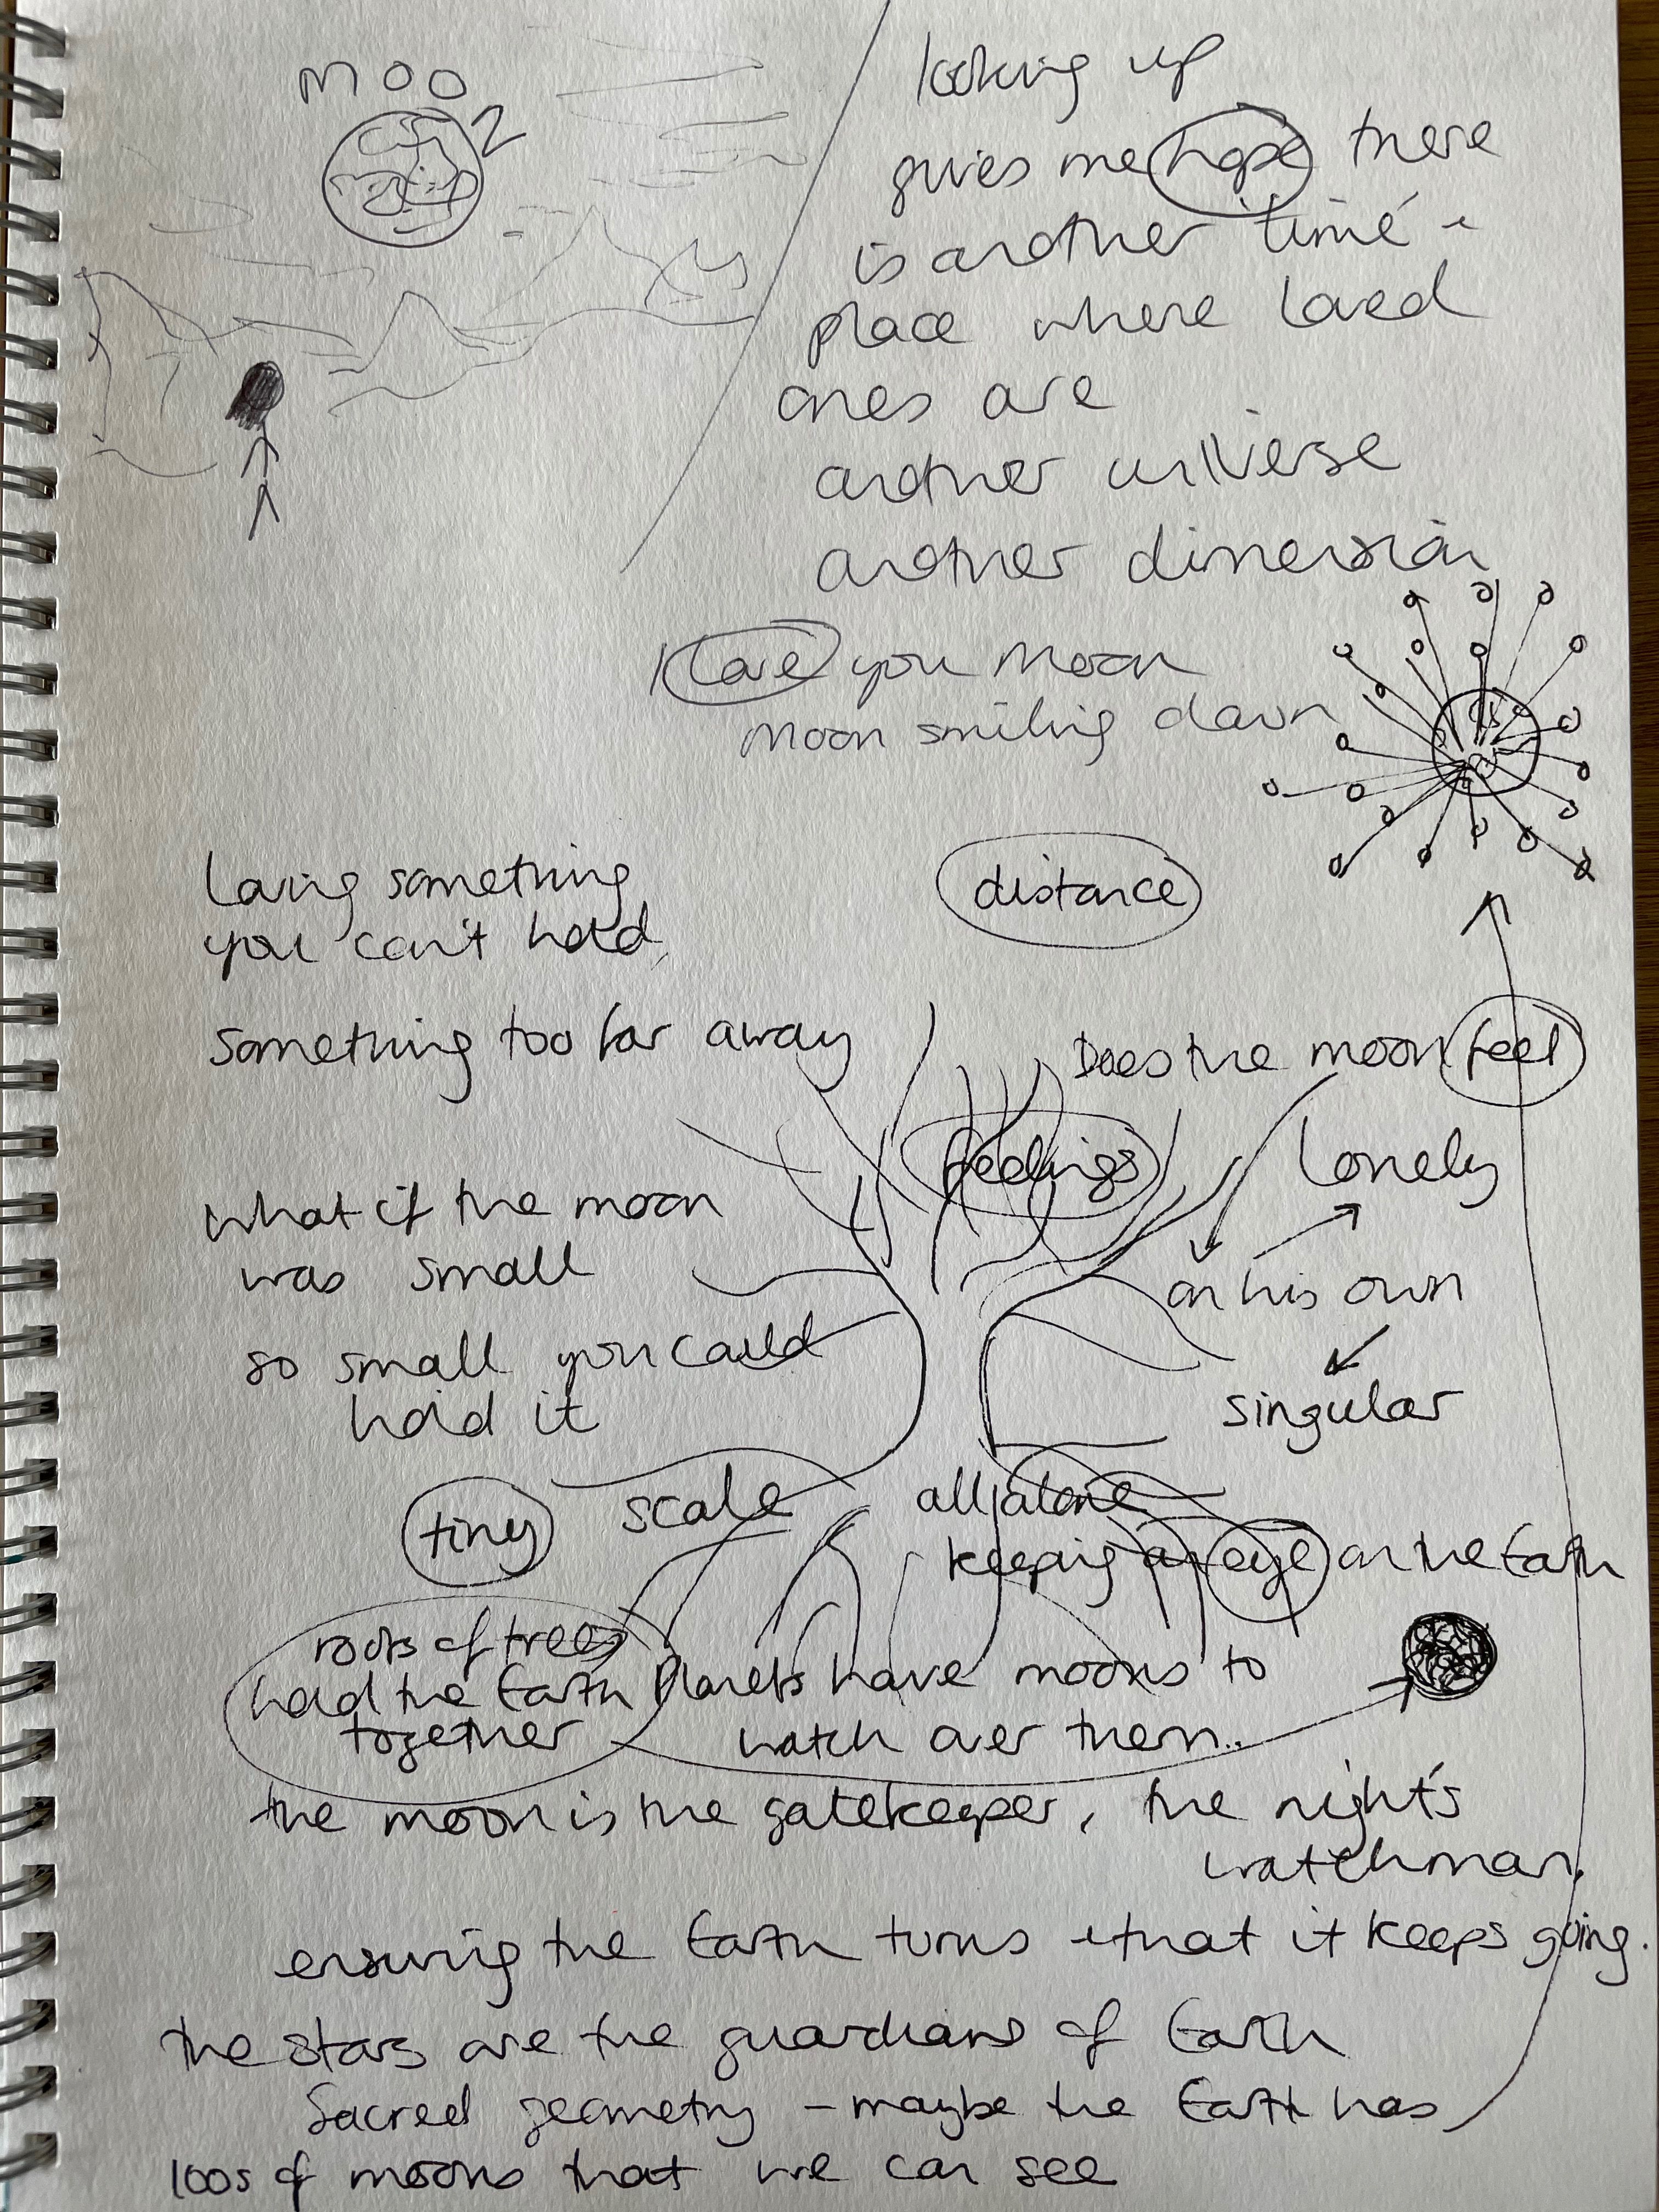 MOON
looking up
gives me hope there
is another time +
place where loved
ones are
another universe
another dimension
I love you moon
moon smiling down
loving something
you can't hold,
distance
something too far away
Does the moon feel
feelings
lonely
what if the moon
was small
on his own
so small you could
hold it
singular
tiny
scale
all alone
keeping an eye on the Earth
roots of trees
hold the Earth
together
Planets have moons to
watch over them..
the moon is the gatekeeper, the night's
watchman,
ensuring the Earth turns + that it keeps going.
the stars are the guardians of Earth
Sacred geometry - maybe the Earth has
100s of moons that we can see